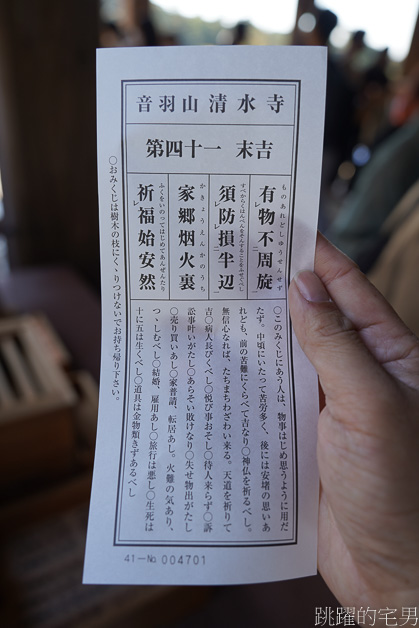 音羽山清水寺
第四十一 末吉
有物不周旋
ものあれどしゅうせんせず
須防損半辺
すべからくはんぺんをそんすることをふせぐべし
家郷烟火裏
かきょうえんかのうち
祈福始安然
ふくをいのってはじめてあんぜんたり
〇このみくじにあう人は、物事はじめ思うように用だ
たず。中頃にいたつて苦労多く、後には安堵の思いあ
れども、前の苦難にくらべて吉なり〇神仏を祈るべし。
無信心なれば、たちまちわざわい来る。天道を祈りて
吉〇病人長びくべし〇悦び事おそし〇待人来らず〇訴
訟事叶いがたし〇あらそい敗けなり〇失せ物出がたし
〇売り買いあし〇家普請、転居あし。火難の気あり、
つゝしむべし〇結婚、雇用あし〇旅行は悪し〇生死は
十に五は生くべし〇道具は金物類きずあるべし
〇おみくじは樹木の枝にくゝりつけないでお持ち帰り下さい。
41－No. 004701
跳躍的宅男